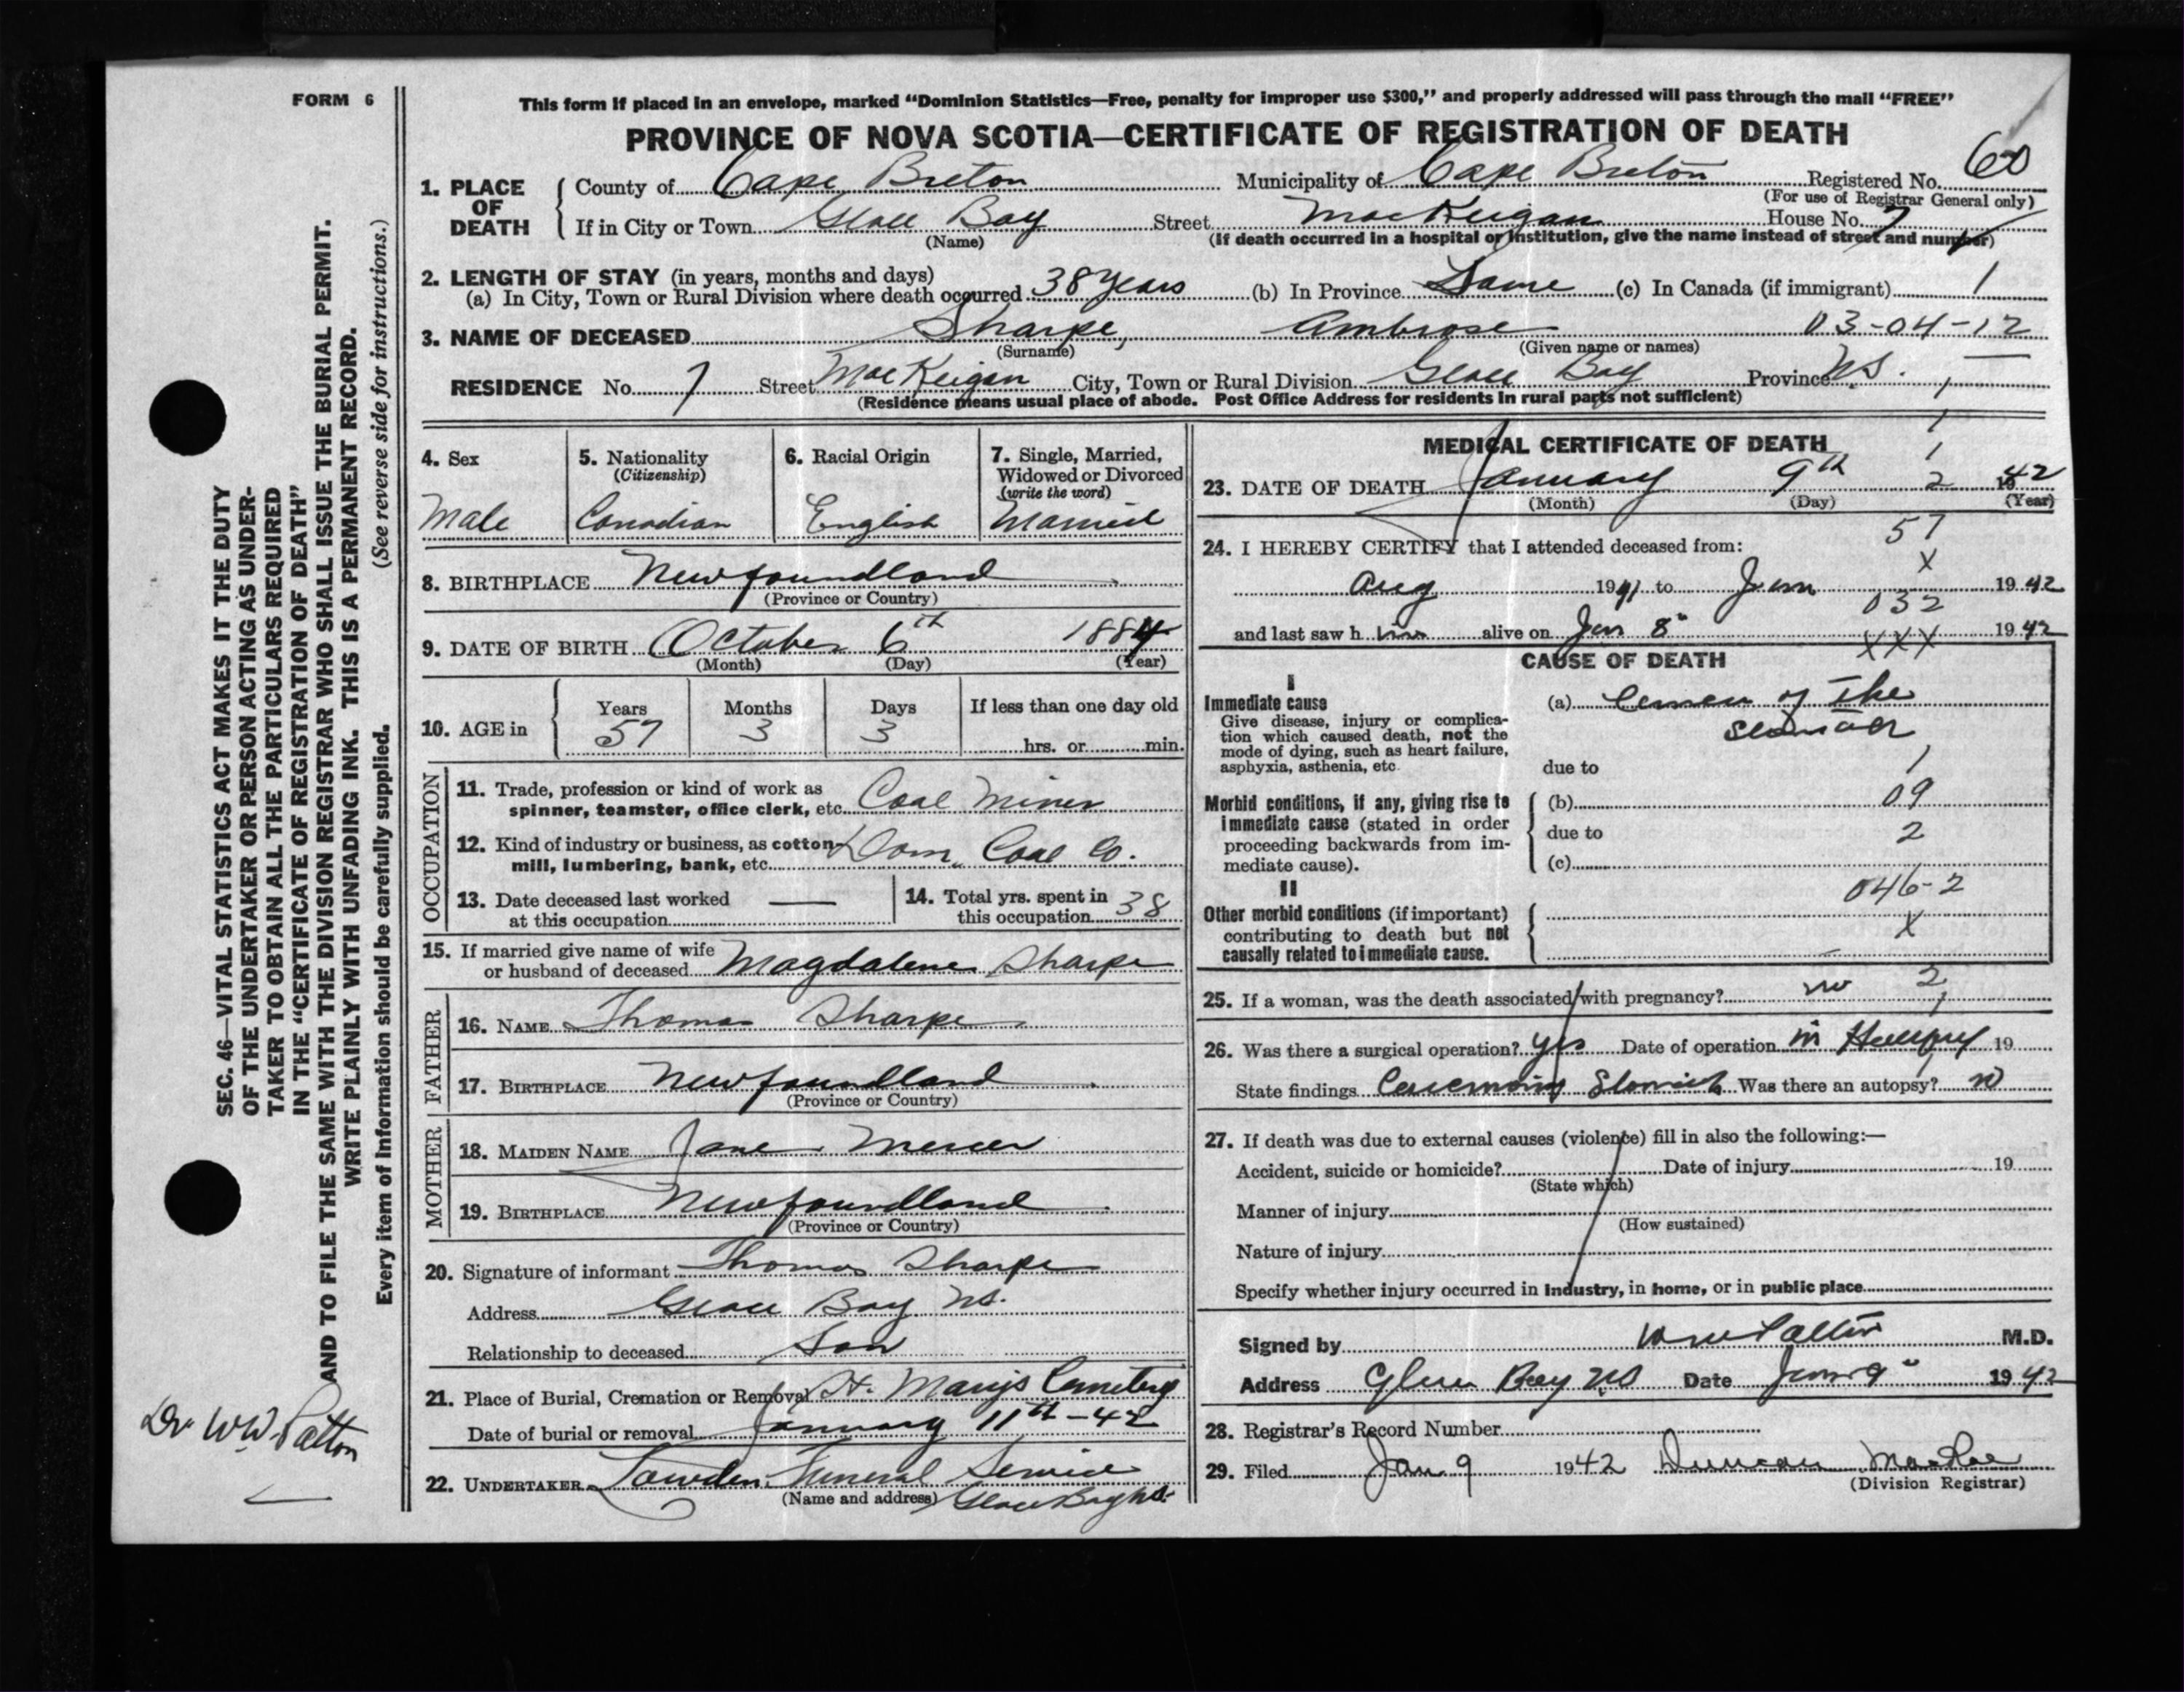 FORM 6
This form if placed in an envelope, marked "Dominion Statistics—Free, penalty for improper use $300," and properly addressed will pass through the mail "FREE"
PROVINCE OF NOVA SCOTIA—CERTIFICATE OF REGISTRATION OF DEATH
60
1. PLACE OF DEATH { County of Cape Breton Municipality of Cape Breton Registered No.
(For use of Registrar General only)
If in City or Town Glace Bay Street MacKeigan House No. 7
(Name) (If death occurred in a hospital or institution, give the name instead of street and number)
2. LENGTH OF STAY (in years, months and days)
(a) In City, Town or Rural Division where death occurred 38 years (b) In Province Same (c) In Canada (if immigrant) 1
3. NAME OF DECEASED Sharpe, Ambrose 03-04-12
(Surname) (Given name or names)
RESIDENCE No. 7 Street MacKeigan City, Town or Rural Division Glace Bay Province N.S.
(Residence means usual place of abode. Post Office Address for residents in rural parts not sufficient)
4. Sex
Male
5. Nationality
(Citizenship)
Canadian
6. Racial Origin
English
7. Single, Married,
Widowed or Divorced
(write the word)
Married
8. BIRTHPLACE Newfoundland
(Province or Country)
9. DATE OF BIRTH October 6th 1884
(Month) (Day) (Year)
10. AGE in { Years Months Days If less than one day old
57 3 3 hrs. or min.
OCCUPATION
11. Trade, profession or kind of work as
spinner, teamster, office clerk, etc. Coal Miner
12. Kind of industry or business, as cotton
mill, lumbering, bank, etc. Dom. Coal Co.
13. Date deceased last worked
at this occupation —
14. Total yrs. spent in
this occupation 38
15. If married give name of wife
or husband of deceased Magdalene Sharpe
FATHER
16. NAME Thomas Sharpe
17. BIRTHPLACE Newfoundland
(Province or Country)
MOTHER
18. MAIDEN NAME Jane Mercer
19. BIRTHPLACE Newfoundland
(Province or Country)
20. Signature of informant Thomas Sharpe
Address Glace Bay N.S.
Relationship to deceased Son
21. Place of Burial, Cremation or Removal St. Marys Cemetery
Date of burial or removal January 11th-42
22. UNDERTAKER Lowden Funeral Service
(Name and address) Glace Bay N.S.
MEDICAL CERTIFICATE OF DEATH
1
1
1
23. DATE OF DEATH January 9th 2 1942
(Month) (Day) (Year)
57
24. I HEREBY CERTIFY that I attended deceased from:
X
Aug 1941 to Jan 1942
032
and last saw him alive on Jan 8" 1942
XXX
CAUSE OF DEATH
I
Immediate cause
Give disease, injury or complica-
tion which caused death, not the
mode of dying, such as heart failure,
asphyxia, asthenia, etc.
(a) Cancer of the
stomach
due to 1
Morbid conditions, if any, giving rise to
immediate cause (stated in order
proceeding backwards from im-
mediate cause).
(b) 09
due to 2
(c)
II
046-2
Other morbid conditions (if important)
contributing to death but not
causally related to immediate cause.
X
25. If a woman, was the death associated with pregnancy? no 2
1
26. Was there a surgical operation? yes Date of operation in 19
State findings Stomach Was there an autopsy? no
27. If death was due to external causes (violence) fill in also the following:—
Accident, suicide or homicide? Date of injury 19
(State which)
Manner of injury
(How sustained)
Nature of injury
Specify whether injury occurred in industry, in home, or in public place
Signed by WW Patton M.D.
Address Glace Bay N.S Date Jan 9" 1942
28. Registrar's Record Number
29. Filed Jan 9 1942 Duncan MacRae
(Division Registrar)
SEC. 46—VITAL STATISTICS ACT MAKES IT THE DUTY
OF THE UNDERTAKER OR PERSON ACTING AS UNDER-
TAKER TO OBTAIN ALL THE PARTICULARS REQUIRED
IN THE "CERTIFICATE OF REGISTRATION OF DEATH"
AND TO FILE THE SAME WITH THE DIVISION REGISTRAR WHO SHALL ISSUE THE BURIAL PERMIT.
WRITE PLAINLY WITH UNFADING INK. THIS IS A PERMANENT RECORD.
Every item of information should be carefully supplied. (See reverse side for instructions.)
Dr WW. Patton